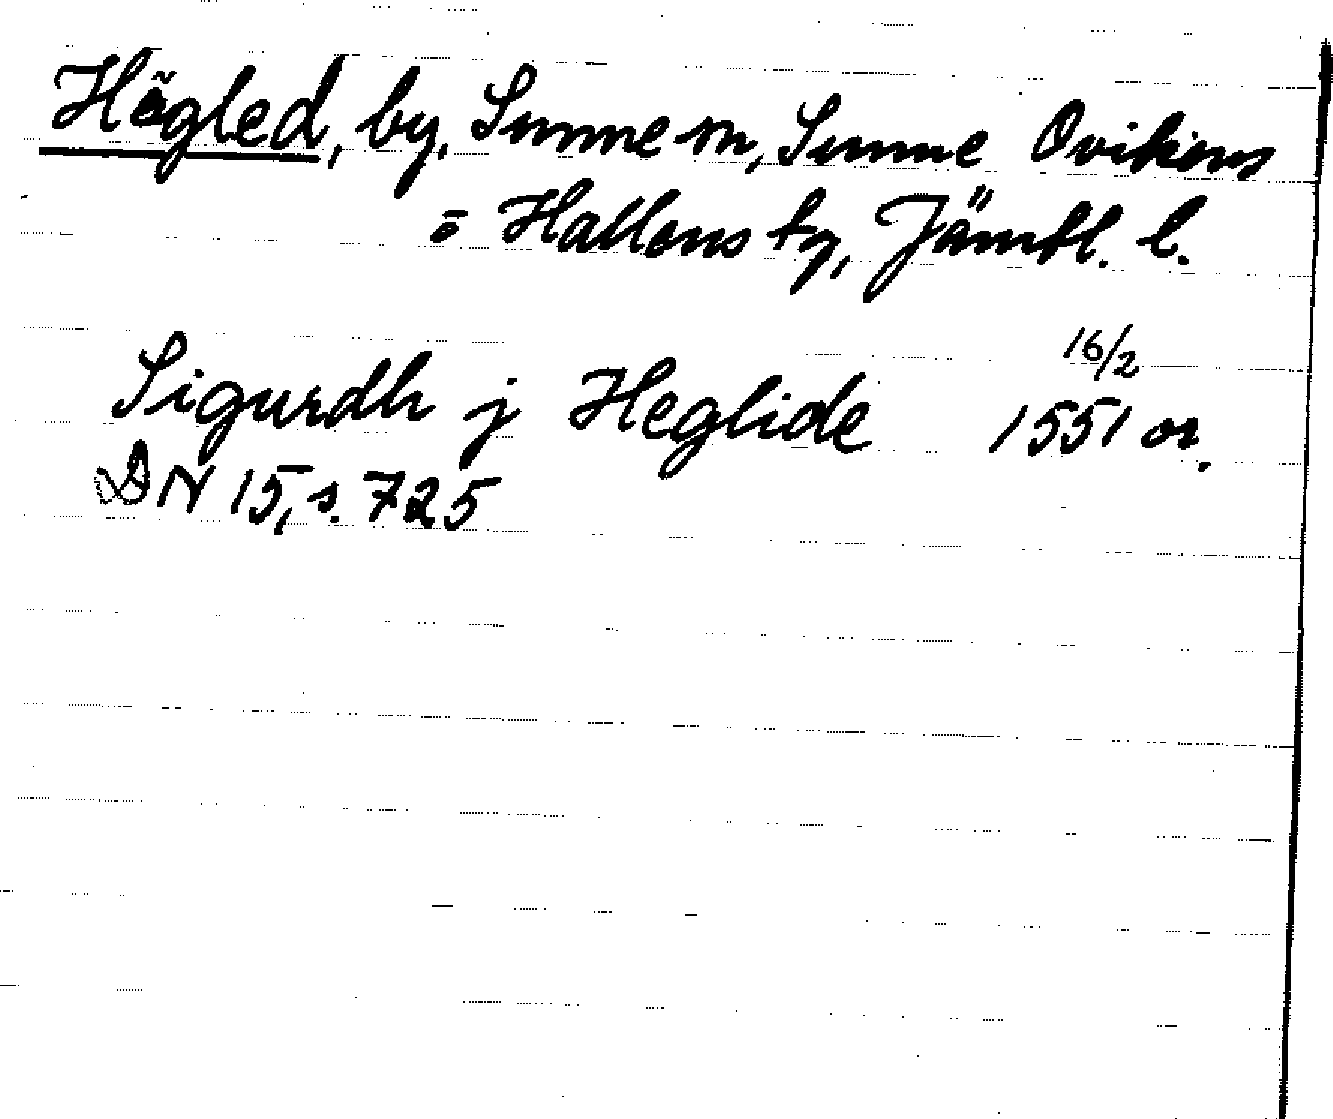 Högled, by, Sunne sn, Sunne Ovikens
o Hallens tg, Jämtl. l.
16/2
Sigurdh j Heglide 1551 or.
DN 15, s. 725